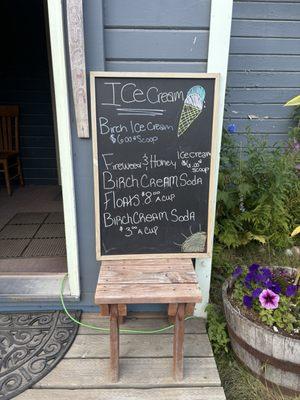 ICe Cream
Birch Ice Cream
$6.00 Scoop
Fireweed & Honey Ice cream
$6.00 Scoop
Birch Cream Soda
Floats $8.00 a Cup
Birch Cream Soda
$3.00 a Cup